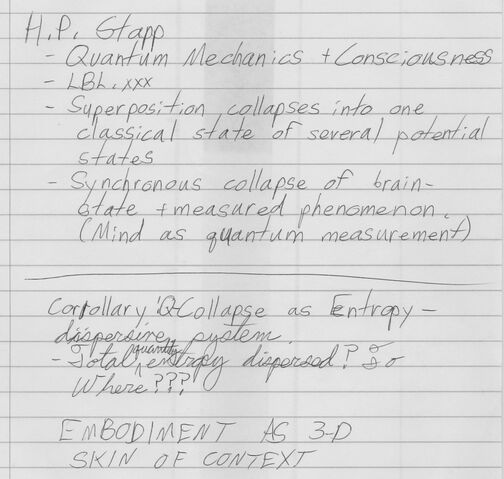 H.P. Stapp
- Quantum Mechanics + Consciousness
- LBL.xxx
- Superposition collapses into one
classical state of several potential
states
- Synchronous collapse of brain-
state + measured phenomenon.
(Mind as quantum measurement)
Corrollary: Q-Collapse as Entropy-
dispersive system.
- Total quantity entropy dispersed? To
Where???
EMBODIMENT AS 3-D
SKIN OF CONTEXT